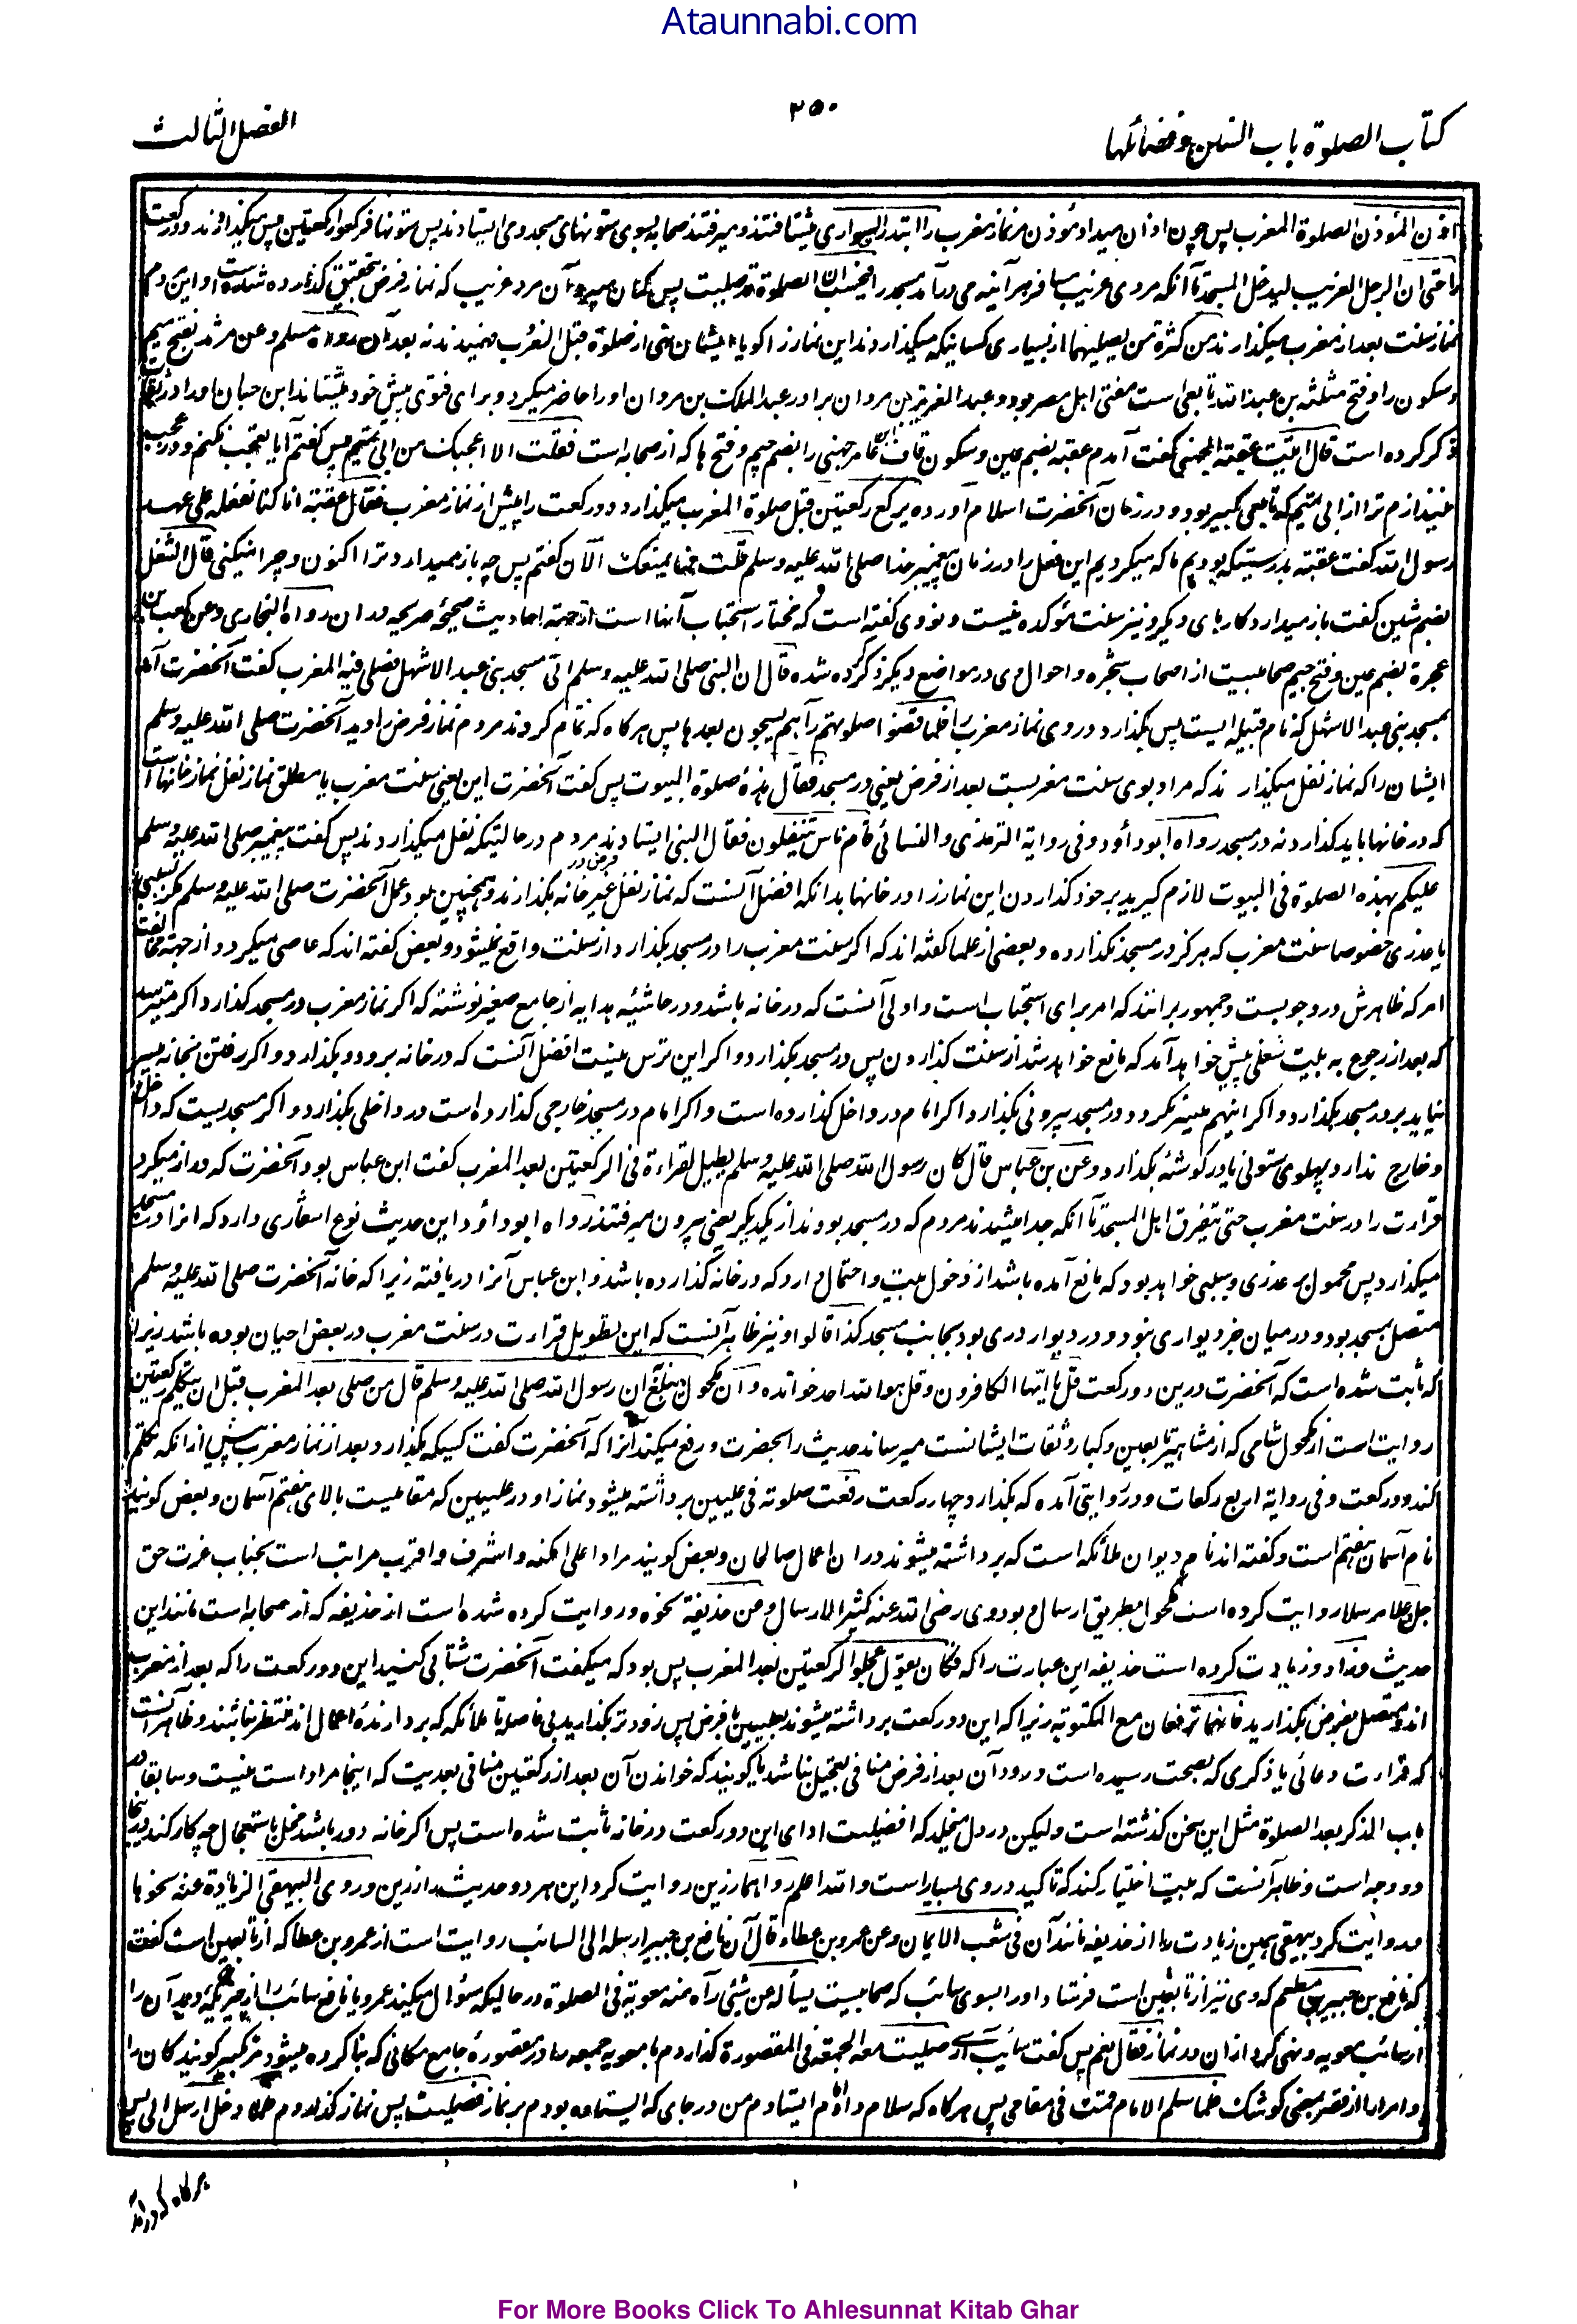 Ataunnabi.com
کتاب الصلوة باب السنن و فضائلها
۴۵۰
الفصل الثالث
اذن المؤذن الصلوة المغرب پس چون اذان میداد مؤذن مر نماز مغرب را ابتدر السواری میشتافتند و میرفتند صحابه بسوی ستونهای مسجد و می ایستادند پس ستونها فرکعوا رکعتین پس میگذاردند دو رکعت
را حتی ان الرجل الغریب لیدخل المسجد تا آنکه مردی غریب مسافر هر آئینه می درآمد مسجد را فیحسب ان الصلوة قد صلیت پس گمان میبرد آن مرد غریب که نماز فرض بتحقیق گذارده شده است و این مردم
نماز سنت بعد از مغرب میگذارند من کثرة من یصلیهما از بسیاری کسانیکه میگذاردند این نماز را گویا ایشان نهی از صلوة قبل المغرب فهمیدند نه بعد آن رواه مسلم و عن مرثد بفتح میم
و سکون را و فتح مثلثه بن عبد الله تابعی است مفتی اهل مصر بود و عبد العزیز بن مروان برادر عبد الملک بن مروان او را حاضر میکرد و برای فتوی پیش خود مینشاند ابن حبان او را در ثقات
ذکر کرده است قال اتیت عقبة الجهنی گفت آمدم عقبه بضم عین و سکون قاف بن عامر جهنی را بضم جیم و فتح ها که از صحابه است فقلت الا اعجبک من ابی تمیم پس گفتم آیا بتعجب نکنم و در عجب
نیندازم ترا از ابی تمیم که تابعی کبیر بود و در زمان آنحضرت اسلام آورده یرکع رکعتین قبل صلوة المغرب میگذارد دو رکعت را پیش از نماز مغرب فقال عقبة انا کنا نفعله علی عهد
رسول الله گفت عقبه بدرستیکه بودیم ما که میکردیم این فعل را در زمان پیغمبر خدا صلی الله علیه وسلم قلت فما یمنعک الآن گفتم پس چه باز میدارد ترا اکنون و چرا نمیکنی قال الشغل
بضم شین گفت باز میدارد کارهای دیگر و نیز سنت مؤکده نیست و نووی گفته است که مختار استحباب آنها است از جهت احادیث صحیحه صریحه در ان رواه البخاری و عن کعب بن
عجرة بضم عین و فتح جیم صحابیست از اصحاب شجره و احوال وی در مواضع دیگر ذکر کرده شده قال ان النبی صلی الله علیه وسلم اتی مسجد بنی عبد الاشهل فصلی فیه المغرب گفت آنحضرت آمد
بمسجد بنی عبد الاشهل که نام قبیله ایست پس بگذارد در وی نماز مغرب را فلما قضوا صلوتهم رآهم یسبحون بعدها پس هرگاه که تمام کردند مردم نماز فرض را دید آنحضرت صلی الله علیه وسلم
ایشان را که نماز نفل میگذارند که مراد بوی سنت مغربست بعد از فرض یعنی در مسجد فقال هذه صلوة البیوت پس گفت آنحضرت این یعنی سنت مغرب یا مطلق نماز نفل نماز خانها است
که در خانها باید گذارد نه در مسجد رواه ابو داؤد و فی روایة الترمذی و النسائی قام ناس یتنفلون فقال النبی ایستادند مردم در حالتیکه نفل میگذاردند پس گفت پیغمبر صلی الله علیه وسلم
علیکم بهذه الصلوة فی البیوت لازم گیرید بر خود گذاردن این نماز را در خانها بدانکه افضل آنست که نماز نفل غیر فرض در خانه بگذارند و همچنین بود عمل آنحضرت صلی الله علیه وسلم مگر بسببی
یا عذری خصوصا سنت مغرب که هرگز در مسجد نگذارده و بعضی از علما گفته اند که اگر سنت مغرب را در مسجد بگذارد از سنت واقع نمیشود و بعض گفته اند که عاصی میگردد از جهت مخالفت
امر که ظاهرش در وجوبست و جمهور بر انند که امر برای استحباب است و اولی آنست که در خانه باشد و در حاشیه هدایه از جامع صغیر نوشته که اگر نماز مغرب در مسجد گذارد اگر میترسد
که بعد از رجوع به بیت شغلی پیش خواهد آمد که مانع خواهد شد از سنت گذاردن پس در مسجد بگذارد و اگر این ترس نیست افضل آنست که در خانه برود و بگذارد و اگر رفتن بخانه میسر
نیاید بر در مسجد بگذارد و اگر اینهم میسر نگردد در مسجد بیرونی بگذارد اگر امام در داخل گذارده است و اگر امام در مسجد خارجی گذارده است در داخلی بگذارد و اگر مسجدیست که داخل
و خارج ندارد پهلوی ستونی یا در گوشه بگذارد و عن بن عباس قال کان رسول الله صلی الله علیه وسلم یطیل القراءة فی الرکعتین بعد المغرب گفت ابن عباس بود آنحضرت که دراز میکرد
قراءت را در سنت مغرب حتی یتفرق اهل المسجد تا آنکه جدا میشدند مردم که در مسجد بودند از یکدیگر یعنی بیرون میرفتند رواه ابو داؤد این حدیث نوع اشعاری دارد که انرا در مسجد
میگذارد پس محمول بر عذری و سببی خواهد بود که مانع آمده باشد از دخول بیت و احتمال دارد که در خانه گذارده باشد و ابن عباس آنرا دریافته زیرا که خانه آنحضرت صلی الله علیه وسلم
متصل بمسجد بود و در میان جز دیواری نبود و در دیوار دری بود بجانب مسجد کذا قالوا و نیز ظاهر آنست که این تطویل قراءت در سنت مغرب در بعض احیان بوده باشد زیرا
که ثابت شده است که آنحضرت درین دو رکعت قل یا ایها الکافرون و قل هو الله احد خوانده و عن مکحول یبلغ ان رسول الله صلی الله علیه وسلم قال من صلی بعد المغرب قبل ان یتکلم رکعتین
روایت است از مکحول شامی که از مشاهیر تابعین و کبار و ثقات ایشانست میرساند حدیث را بحضرت و رفع میکند آنرا که آنحضرت گفت کسیکه بگذارد بعد از نماز مغرب پیش از انکه تکلم
کند دو رکعت و فی روایة اربع رکعات و در روایتی آمده که بگذارد چهار رکعت رفعت صلوته فی علیین برداشته میشود نماز او در علیین که مقامیست بالای هفتم آسمان و بعض گویند
نام آسمان هفتم است و گفته اند نام دیوان ملائکه است که برداشته میشوند در ان اعمال صالحان و بعض گویند مراد اعلی امکنه و اشرف و اقرب مراتب است بجناب عزت حق
جل و علا مرسلا روایت کرده است مکحول بطریق ارسال و بود وی رضی الله عنه کثیر الارسال و عن حذیفة نحوه و روایت کرده شده است از حذیفه که از صحابه است مانند این
حدیث و زاد و زیادت کرده است حذیفه این عبارت را که فکان یقول عجلوا الرکعتین بعد المغرب پس بود که میگفت آنحضرت شتابی کنید این دو رکعت را که بعد از مغرب
اند و متصل بفرض بگذارید فانهما ترفعان مع المکتوبة زیرا که این دو رکعت برداشته میشوند بعلیین با فرض پس زودتر بگذارید بی فاصله تا ملائکه که بردارنده اعمال اند منتظر نباشند و ظاهر آنست
که قراءت دعائی یا ذکری که بصحت رسیده است ورود آن بعد از فرض منافی تعجیل نباشد یا گویند که خواندن آن بعد از رکعتین منافی بعدیت که اینجا مراد است نیست و سابقا در
باب الذکر بعد الصلوة مثل این سخن گذشته است ولیکن در دل میخلد که افضلیت ادای این دو رکعت در خانه ثابت شده است پس اگر خانه دور باشد مخل باستعجال چه کار کند در اینجا
دو وجه است و ظاهر آنست که بیت اختیار کند که تاکید در وی بسیار است و الله اعلم رواهما رزین روایت کرد این هر دو حدیث را رزین و روی البیهقی الزیادة عنه نحوها
و روایت کرد بیهقی همین زیادت را از حذیفه مانند آن فی شعب الایمان و عن عمرو بن عطاء قال ان نافع بن جبیر ارسله الی السائب روایت است از عمرو بن عطا که از تابعین است گفت
که نافع بن جبیر بن مطعم که وی نیز از تابعین است فرستاد او را بسوی سائب که صحابیست یسأله عن شئی رآه منه معویة فی الصلوة در حالیکه سؤال میکند عمرو یا نافع سائب را از چیزیکه دید آن را
از سائب معویه و نهی کرد از ان در نماز فقال نعم پس گفت سائب آری صلیت معه الجمعة فی المقصورة گذاردم با معویه جمعه را در مقصوره جامع مکانی که بنا کرده میشود
و امرا را از قصر بمعنی کوشک فلما سلم الامام قمت فی مقامی پس هرگاه که سلام داد امام ایستادم من در جای که ایستاده بودم بر نماز فصلیت پس نماز گذاردم فلما دخل ارسل الی پس
هرگاه که درآمد
For More Books Click To Ahlesunnat Kitab Ghar